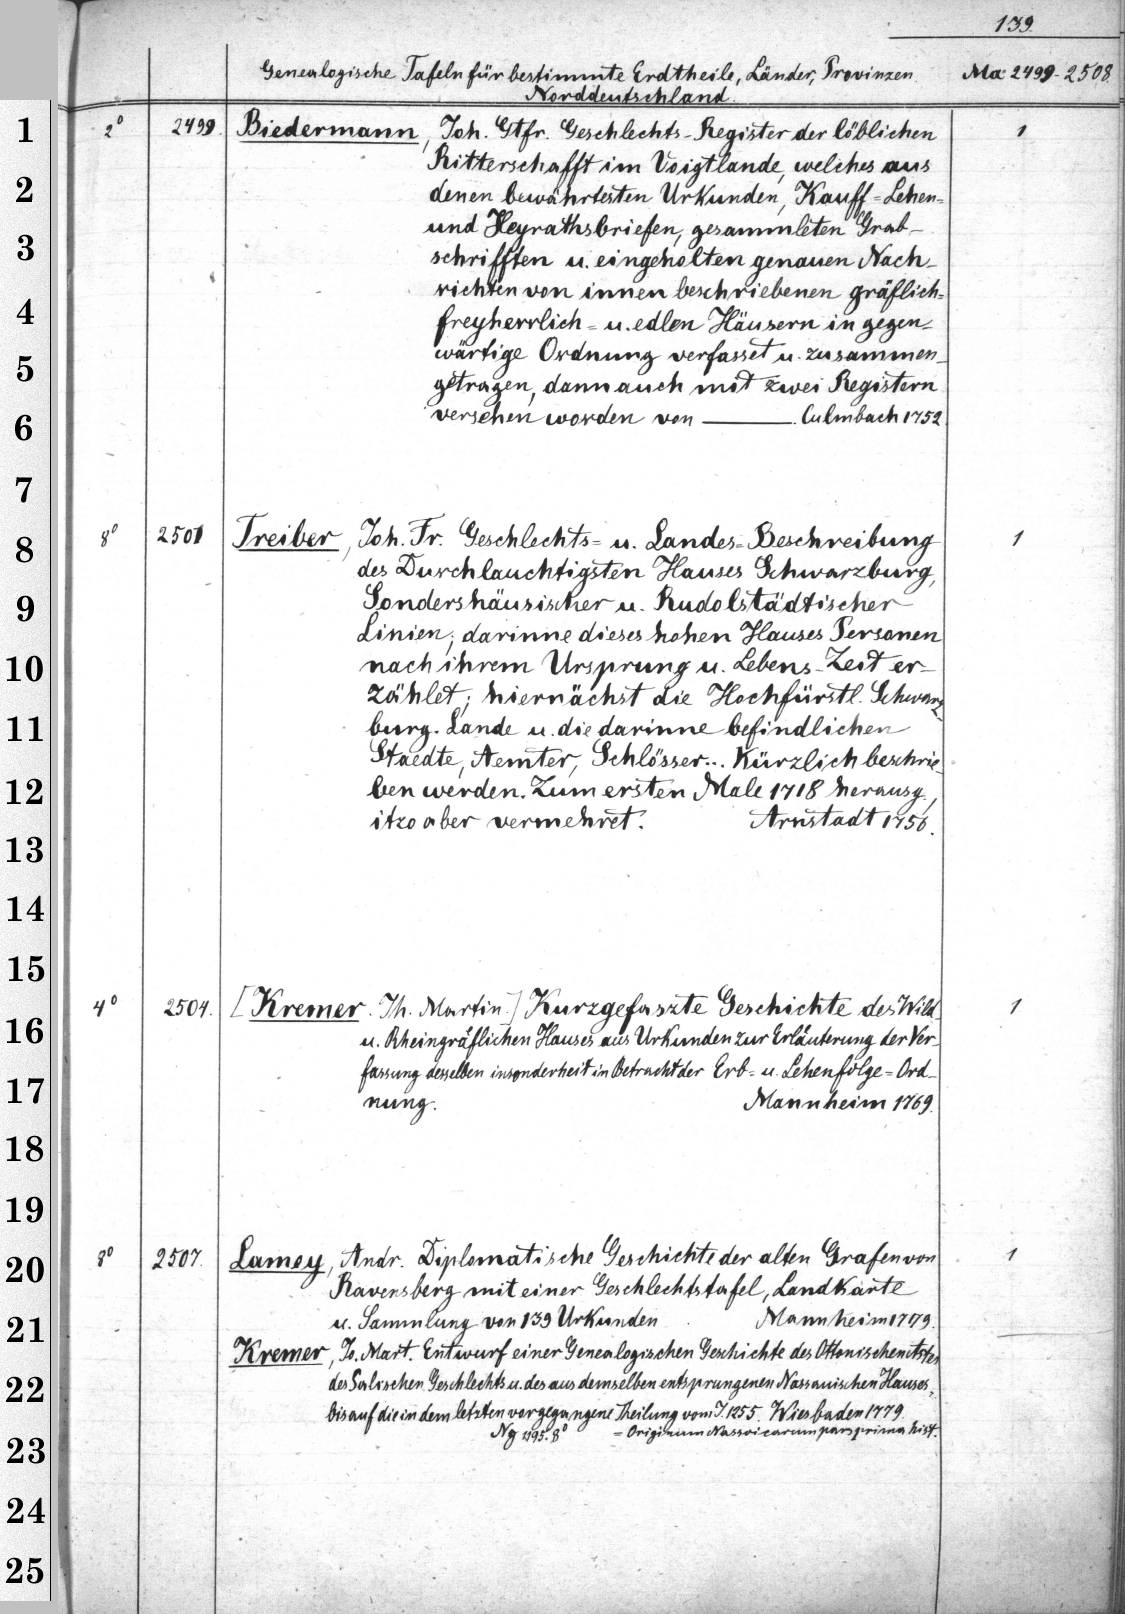 139
Genealogische Tafeln für bestimmte Erdtheile, Länder, Provinzen. Ma: 2499-2508.
Norddeutschland.
1
2
3
4
5
6
7
8
9
10
11
12
13
14
15
16
17
18
19
20
21
22
23
24
25
2° 2499. Biedermann, Joh. Gtfr. Geschlechts-Register der löblichen 1
Ritterschafft im Voigtlande, welches aus
denen bewährtesten Urkunden, Kauff=Lehen=
und Heyrathsbriefen, gesammleten Grab-
schrifften u. eingeholten genauen Nach-
richten von innen beschriebenen gräflich=
freyherrlich= u. edlen Häusern in gegen=
wärtige Ordnung verfasset u. zusammen-
getragen, dann auch mit zwei Registern
versehen worden von ———. Culmbach 1752
8° 2501 Treiber, Joh. Fr. Geschlechts= u. Landes=Beschreibung 1
des Durchlauchtigsten Hauses Schwarzburg,
Sondershäusischer u. Rudolstädtischer
Linien, darinne dieses hohen Hauses Personen
nach ihrem Ursprung u. Lebens-Zeit er-
zählet; hiernächst die Hochfürstl. Schwarz-
burg. Lande u. die darinne befindlichen
Staedte, Aemter, Schlösser... Kürzlich beschrie-
ben werden. Zum ersten Male 1718 herausg.,
itzo aber vermehret. Arnstadt 1756.
4° 2504. [Kremer. Jh. Martin.] Kurzgefaszte Geschichte des Wild- 1
u. Rheingräflichen Hauses aus Urkunden zur Erläuterung der Ver-
fassung desselben insonderheit in Betracht der Erb- u. Lehenfolge=Ord-
nung. Mannheim 1769.
8° 2507. Lamey, Andr. Diplomatische Geschichte der alten Grafen von 1
Ravensberg mit einer Geschlechtstafel, Landkarte
u. Sammlung von 139 Urkunden. Mannheim 1779.
Kremer, Jo. Mart. Entwurf einer Genealogischen Geschichte des Ottonischen
des Salischen Geschlechts u. des aus demselben entsprungenen Nassauischen Hauses,
bis auf die in dem letzten vorgegangene Theilung vom J. 1255. Wiesbaden 1779.
Ng 8° = Originum Nassoicarum pars prima hist.